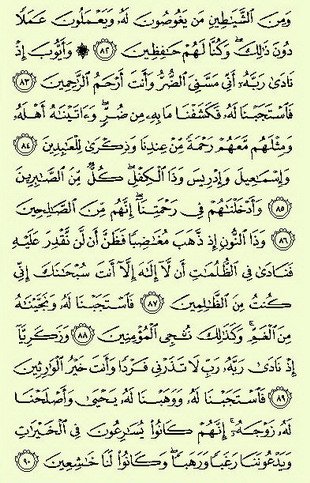 وَمِنَ الشَّيَـٰطِينِ مَن يَغُوصُونَ لَهُۥ وَيَعْمَلُونَ عَمَلًا
دُونَ ذَٰلِكَ ۖ وَكُنَّا لَهُمْ حَـٰفِظِينَ ٨٢ ۞ وَأَيُّوبَ إِذْ
نَادَىٰ رَبَّهُۥٓ أَنِّي مَسَّنِيَ الضُّرُّ وَأَنتَ أَرْحَمُ الرَّٰحِمِينَ ٨٣
فَاسْتَجَبْنَا لَهُۥ فَكَشَفْنَا مَا بِهِۦ مِن ضُرٍّ ۖ وَءَاتَيْنَـٰهُ أَهْلَهُۥ
وَمِثْلَهُم مَّعَهُمْ رَحْمَةً مِّنْ عِندِنَا وَذِكْرَىٰ لِلْعَـٰبِدِينَ ٨٤
وَإِسْمَـٰعِيلَ وَإِدْرِيسَ وَذَا الْكِفْلِ ۖ كُلٌّ مِّنَ الصَّـٰبِرِينَ
٨٥ وَأَدْخَلْنَـٰهُمْ فِي رَحْمَتِنَآ ۖ إِنَّهُم مِّنَ الصَّـٰلِحِينَ
٨٦ وَذَا النُّونِ إِذ ذَّهَبَ مُغَـٰضِبًا فَظَنَّ أَن لَّن نَّقْدِرَ عَلَيْهِ
فَنَادَىٰ فِي الظُّلُمَـٰتِ أَن لَّآ إِلَـٰهَ إِلَّآ أَنتَ سُبْحَـٰنَكَ إِنِّي
كُنتُ مِنَ الظَّـٰلِمِينَ ٨٧ فَاسْتَجَبْنَا لَهُۥ وَنَجَّيْنَـٰهُ
مِنَ الْغَمِّ ۚ وَكَذَٰلِكَ نُـۨجِي الْمُؤْمِنِينَ ٨٨ وَزَكَرِيَّآ
إِذْ نَادَىٰ رَبَّهُۥ رَبِّ لَا تَذَرْنِي فَرْدًا وَأَنتَ خَيْرُ الْوَٰرِثِينَ
٨٩ فَاسْتَجَبْنَا لَهُۥ وَوَهَبْنَا لَهُۥ يَحْيَىٰ وَأَصْلَحْنَا
لَهُۥ زَوْجَهُۥٓ ۚ إِنَّهُمْ كَانُوا۟ يُسَـٰرِعُونَ فِي الْخَيْرَٰتِ
وَيَدْعُونَنَا رَغَبًا وَرَهَبًا ۖ وَكَانُوا۟ لَنَا خَـٰشِعِينَ ٩٠